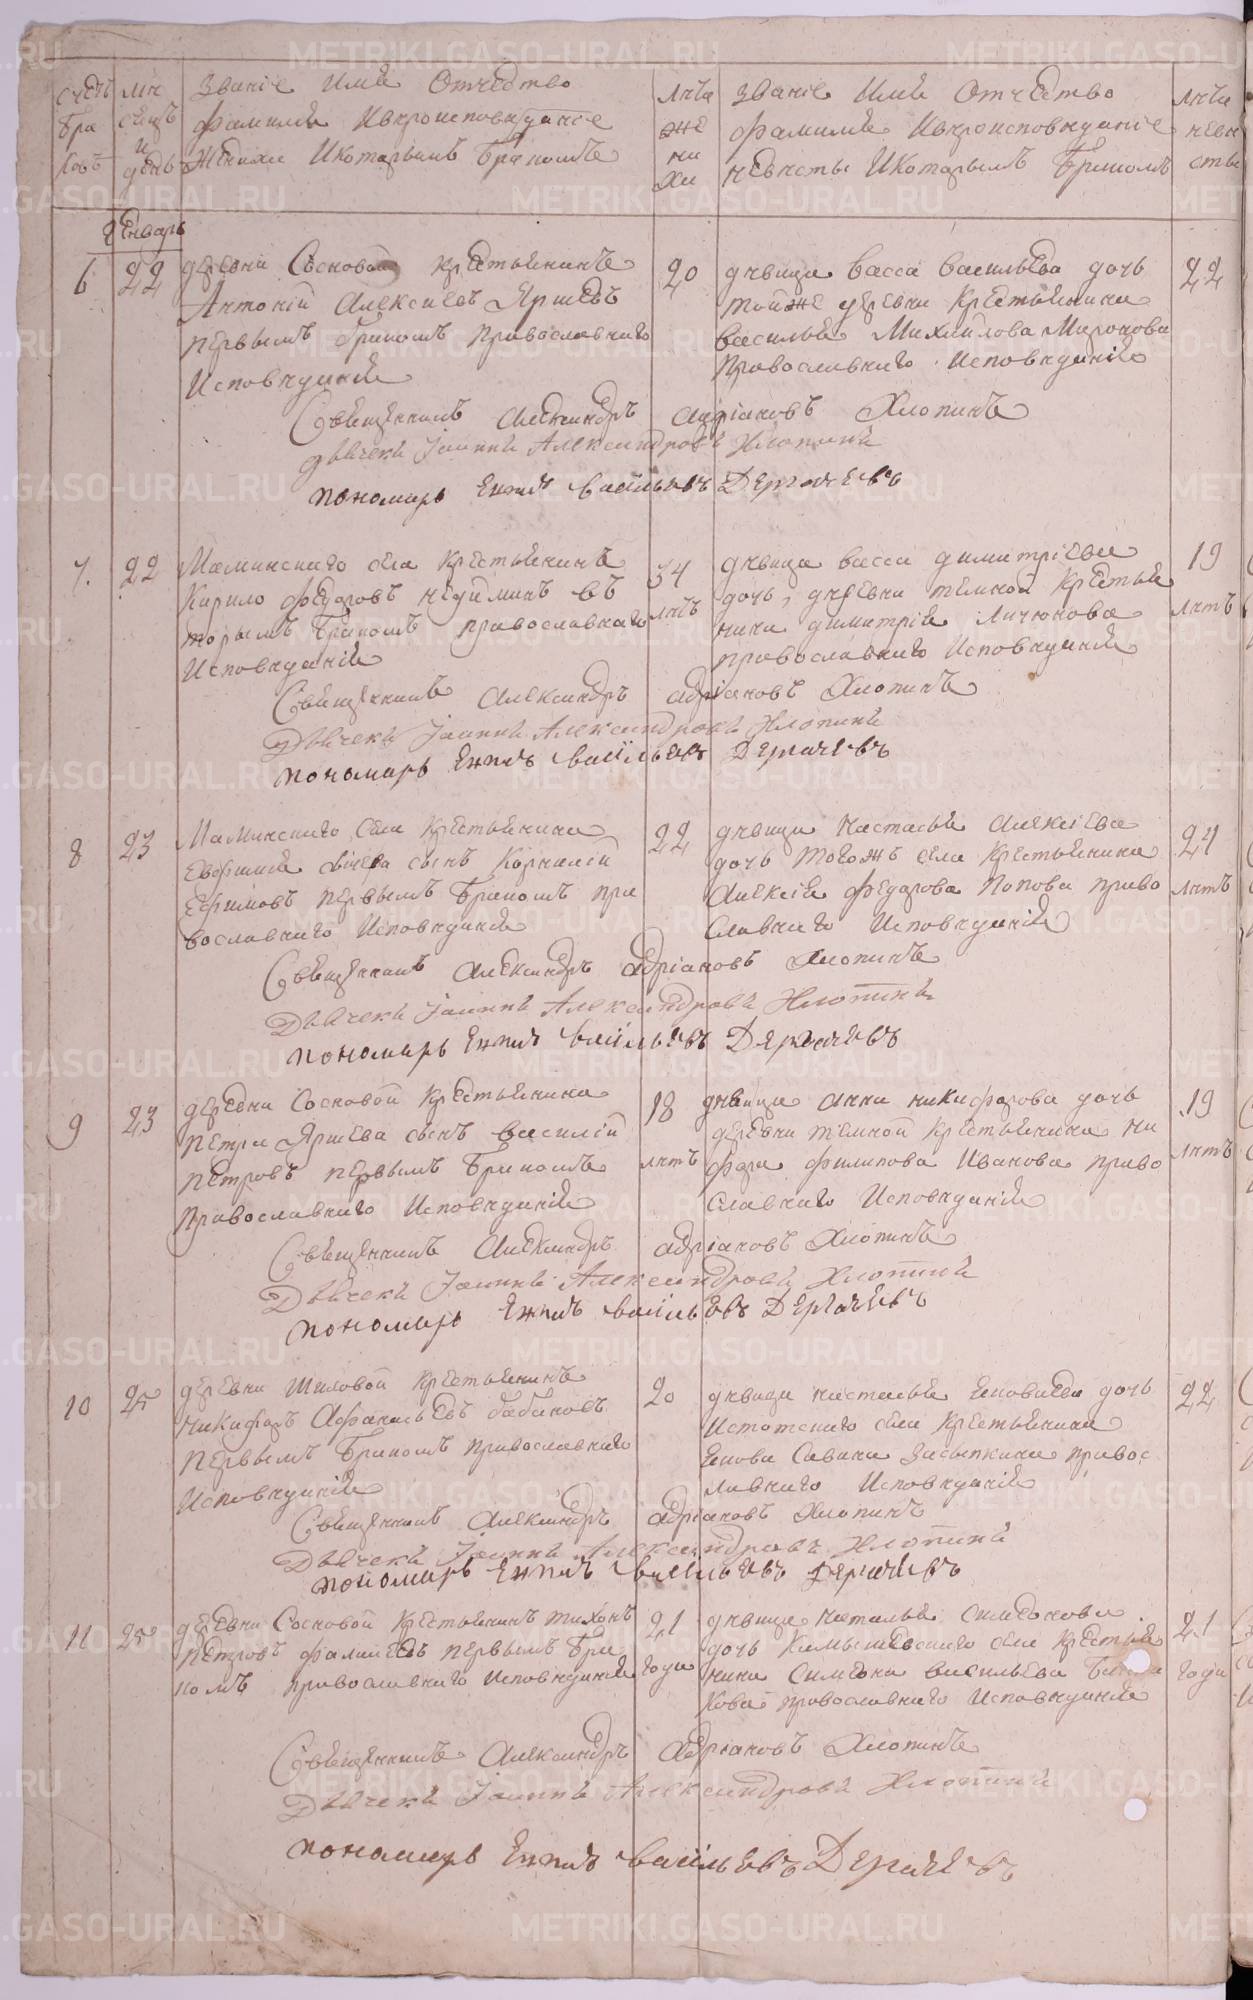 счетъ браковъ
мѣсецъ и день
Званіе Имя Отчество
фамилія Ивѣроисповѣданіе
Жениха Икоторымъ бракомъ
Лѣта жениха
Званіе Имя Отчество
фамилія Ивѣроисповѣданіе
невѣсты Икоторымъ бракомъ
Лѣта невѣсты
Генварь
6 22 деревни Сосновой крестьянинъ
Антоній Алексѣевъ Яршевъ
первымъ бракомъ православнаго
Исповѣданія
20
дѣвица Васса Васильева дочь
тойже деревни Крестьянина
василья Михайлова Миронова
Православнаго Исповѣданія
22
Священникъ Александръ Адріановъ Хлопинъ
Дьячекъ Іоаннъ Александровъ Хлопинъ
пономарь васильевъ Дергачевъ
7. 22 Маминскаго села Крестьянинъ
Кирило федоровъ въ
торымъ бракомъ православнаго
Исповѣданія
34 лѣтъ
дѣвица васса димитріева
дочь, деревни темной Крестья
нина димитрія
православнаго Исповѣданія
19 лѣтъ
Священникъ Александръ Адріановъ Хлопинъ
Дьячекъ Іоаннъ Александровъ Хлопинъ
пономарь васильевъ Дергачевъ
8 23 Маминскаго села Крестьянина
Евфимія сынъ Корнилій
Ефимовъ первымъ бракомъ пра
вославнаго Исповѣданія
22
дѣвица Настасья Алексіева
дочь тогожъ села Крестьянина
Алексія федорова Попова право
славнаго Исповѣданія
24 лѣтъ
Священникъ Александръ Адріановъ Хлопинъ
Дьячекъ Іоаннъ Александровъ Хлопинъ
пономарь васильевъ Дергачевъ
9 23 деревни Сосновой Крестьянина
петра Яршева сынъ василій
петровъ первымъ бракомъ
Православнаго Исповѣданія
18 лѣтъ
дѣвица анна никифорова дочь
деревни темной Крестьянина ни
фора филипова Иванова право
славнаго Исповѣданія
19 лѣтъ
Священникъ Александръ Адріановъ Хлопинъ
Дьячекъ Іоаннъ Александровъ Хлопинъ
пономарь васильевъ Дергачевъ
10 25 деревни Шиловой Крестьянинъ
никифоръ Афанасьевъ бабиновъ
первымъ бракомъ православнаго
Исповѣданія
20
дѣвица настасья дочь
Истотскаго села Крестьянина
Савина Засыпкина правос
лавнаго Исповѣданія
22
Священникъ Александръ Адріановъ Хлопинъ
Дьячекъ Іоаннъ Александровъ Хлопинъ
пономарь васильевъ Дергачевъ
11 25 деревни Сосновой Крестьянинъ тихонъ
петровъ первымъ бра
комъ православнаго Исповѣданія
21 года
дѣвица наталья симеонова
дочь Камышевскаго села Крестья
нина Симеона васильева
кова православнаго Исповѣданія
21 года
Священникъ Александръ Адріановъ Хлопинъ
Дьячекъ Іоаннъ Александровъ Хлопинъ
пономарь васильевъ Дергачевъ
METRIKI.GASO-URAL.RU